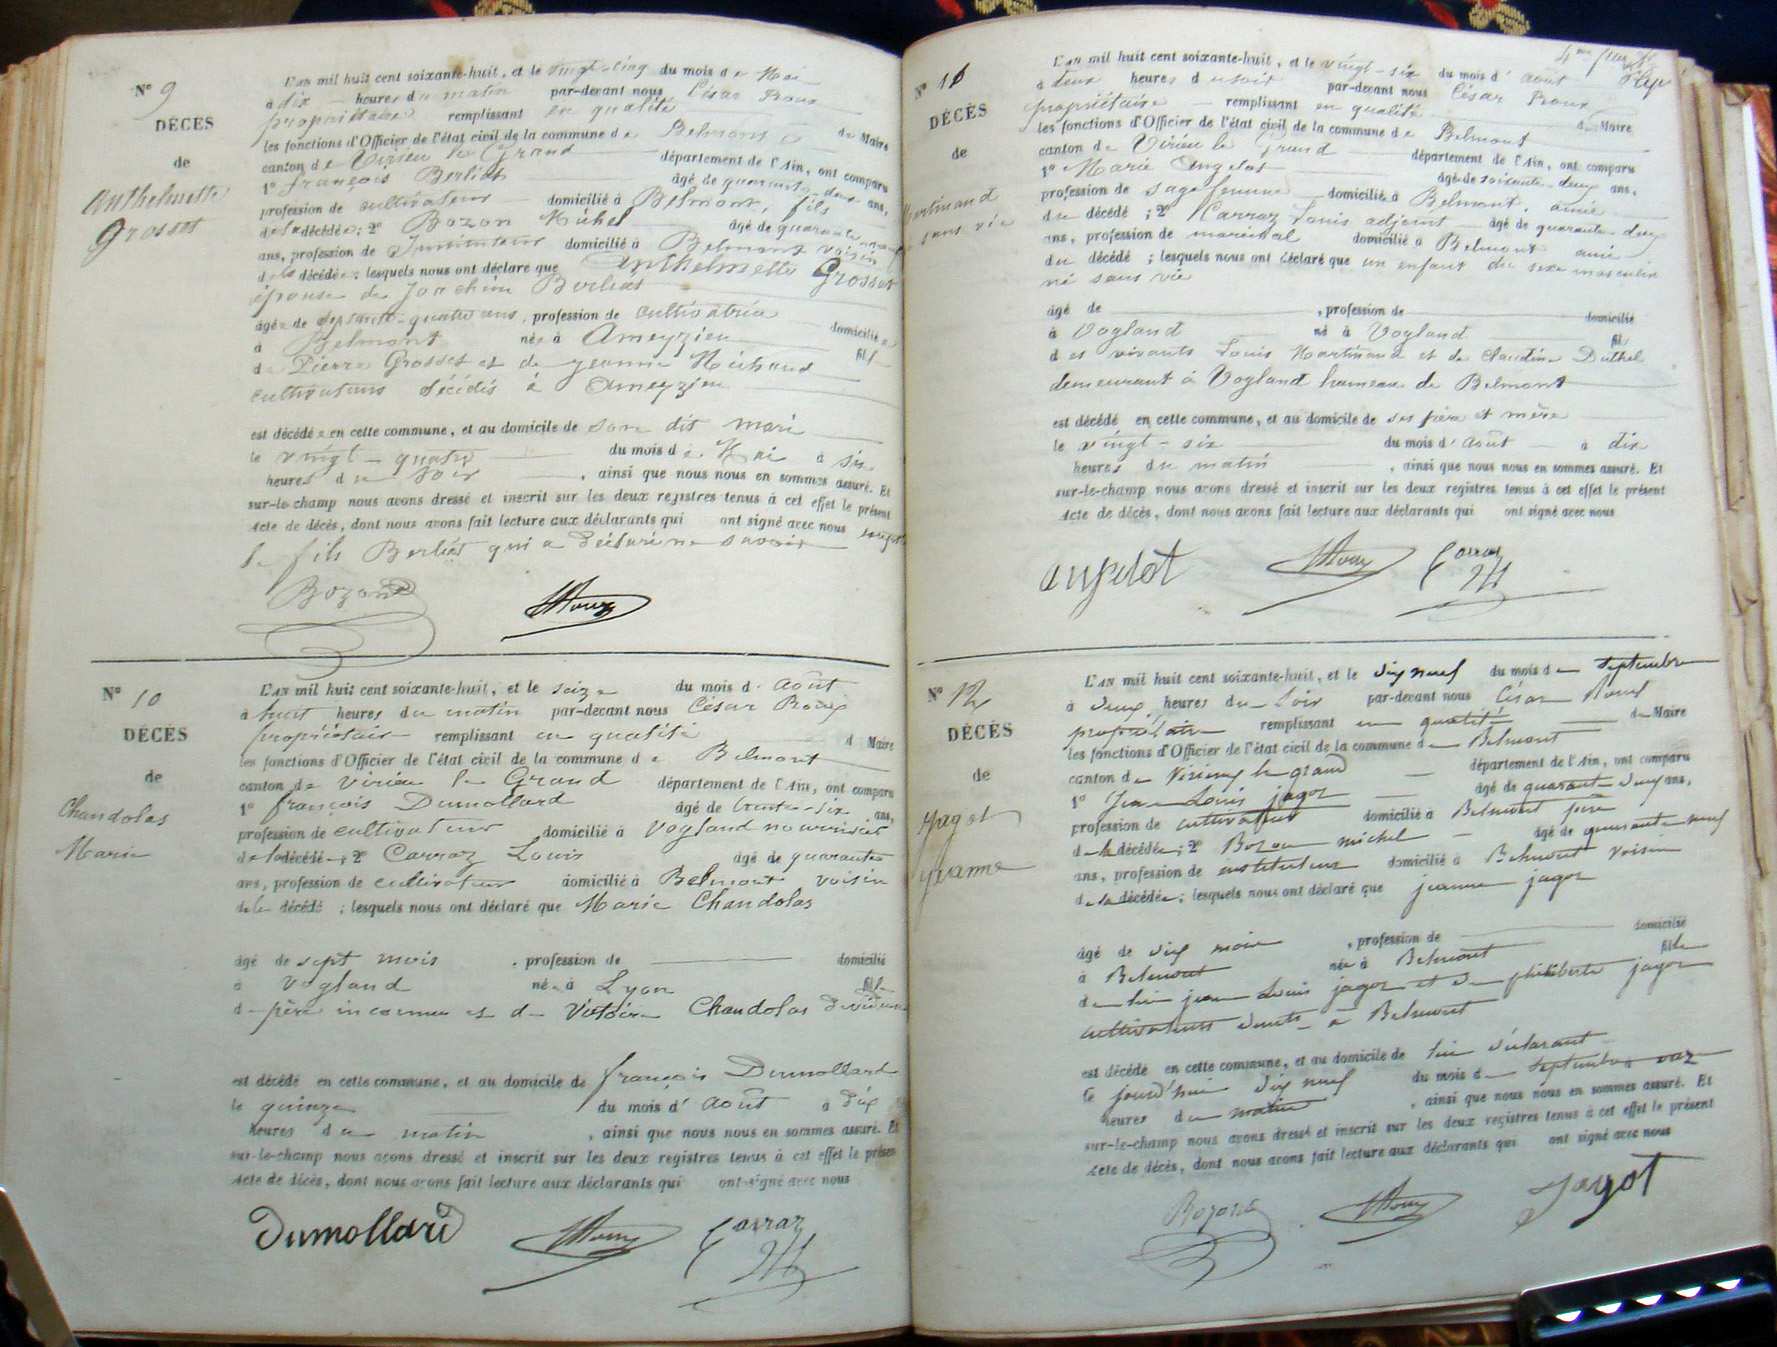 N° 9
DÉCÈS
de
Anthelmette
Grosset
L'AN mil huit cent soixante-huit, et le vingt-cinq du mois de Mai
à dix heures du matin par-devant nous César Roux
propriétaire remplissant en qualité de Maire
les fonctions d'Officier de l'état civil de la commune de Belmont
canton de Virieu le Grand département de l'Ain, ont comparu
1° françois Berliat âgé de quarante-deux ans,
profession de cultivateur domicilié à Belmont, fils
de la décédée; 2° Bozon Michel âgé de quarante
ans, profession de Instituteur domicilié à Belmont voisin
de la décédée; lesquels nous ont déclaré que Anthelmette Grosset
épouse de Joachim Berliat
âgée de soixante-quatre ans, profession de cultivatrice domiciliée
à Belmont née à Ameyzieu fille
de Pierre Grosset et de jeanne Michaud
cultivateurs décédés à Ameyzieu
est décédée en cette commune, et au domicile de son dit mari
le vingt-quatre du mois de Mai à six
heures du soir, ainsi que nous nous en sommes assuré. Et
sur-le-champ nous avons dressé et inscrit sur les deux registres tenus à cet effet le présent
Acte de décès, dont nous avons fait lecture aux déclarants qui ont signé avec nous
le fils Berliat qui a déclaré ne savoir
Bozon Roux
N° 10
DÉCÈS
de
Chandolas
Marie
L'AN mil huit cent soixante-huit, et le seize du mois d' août
à huit heures du matin par-devant nous César Roux
propriétaire remplissant en qualité d Maire
les fonctions d'Officier de l'état civil de la commune de Belmont
canton de Virieu le Grand département de l'Ain, ont comparu
1° françois Dumollard âgé de trente-six ans,
profession de cultivateur domicilié à Vogland nourricier
de la décédée; 2° Carraz Louis âgé de quarante
ans, profession de cultivateur domicilié à Belmont voisin
de la décédé; lesquels nous ont déclaré que Marie Chandolas
âgé de sept mois, profession de domicilié
à Vogland née à Lyon fille
de père inconnu et de Victoire Chandolas
est décédé en cette commune, et au domicile de françois Dumollard
le quinze du mois d' août à dix
heures du matin, ainsi que nous nous en sommes assuré. Et
sur-le-champ nous avons dressé et inscrit sur les deux registres tenus à cet effet le présent
Acte de décès, dont nous avons fait lecture aux déclarants qui ont signé avec nous
Dumollard Roux Carraz
N° 11
DÉCÈS
de
Martinand
sans vie
L'AN mil huit cent soixante-huit, et le vingt-six du mois d' août
à deux heures du soir par-devant nous César Roux
propriétaire remplissant en qualité de Maire
les fonctions d'Officier de l'état civil de la commune de Belmont
canton de Virieu le Grand département de l'Ain, ont comparu
1° Marie Angelot âgée de soixante-deux ans,
profession de sage femme domiciliée à Belmont, amie
du décédé; 2° Carraz Louis adjoint âgé de quarante-deux
ans, profession de maréchal domicilié à Belmont ami
du décédé; lesquels nous ont déclaré que un enfant du sexe masculin
né sans vie
âgé de, profession de domicilié
à Vogland né à Vogland fils
des vivants Louis Martinand et de Claudine Duthel
demeurant à Vogland hameau de Belmont
est décédé en cette commune, et au domicile de ses père et mère
le vingt-six du mois d' août à dix
heures du matin, ainsi que nous nous en sommes assuré. Et
sur-le-champ nous avons dressé et inscrit sur les deux registres tenus à cet effet le présent
Acte de décès, dont nous avons fait lecture aux déclarants qui ont signé avec nous
angelot Roux Carraz
N° 12
DÉCÈS
de
Jagot
jeanne
L'AN mil huit cent soixante-huit, et le dix neuf du mois de septembre
à deux heures du soir par-devant nous César Roux
propriétaire remplissant en qualité de Maire
les fonctions d'Officier de l'état civil de la commune de Belmont
canton de Virieu le grand département de l'Ain, ont comparu
1° Jean Louis jagot âgé de quarante-deux ans,
profession de cultivateur domicilié à Belmont père
de la décédée; 2° Bozon michel âgé de quarante neuf
ans, profession de instituteur domicilié à Belmont voisin
de la décédée; lesquels nous ont déclaré que jeanne jagot
âgé de dix mois, profession de domicilié
à Belmont née à Belmont fille
de lui jean Louis jagot et de philiberte jagot
cultivateurs à Belmont
est décédé en cette commune, et au domicile de lui déclarant
le jourd'hui dix neuf du mois de septembre onze
heures du matin, ainsi que nous nous en sommes assuré. Et
sur-le-champ nous avons dressé et inscrit sur les deux registres tenus à cet effet le présent
Acte de décès, dont nous avons fait lecture aux déclarants qui ont signé avec nous
Bozon Roux Jagot